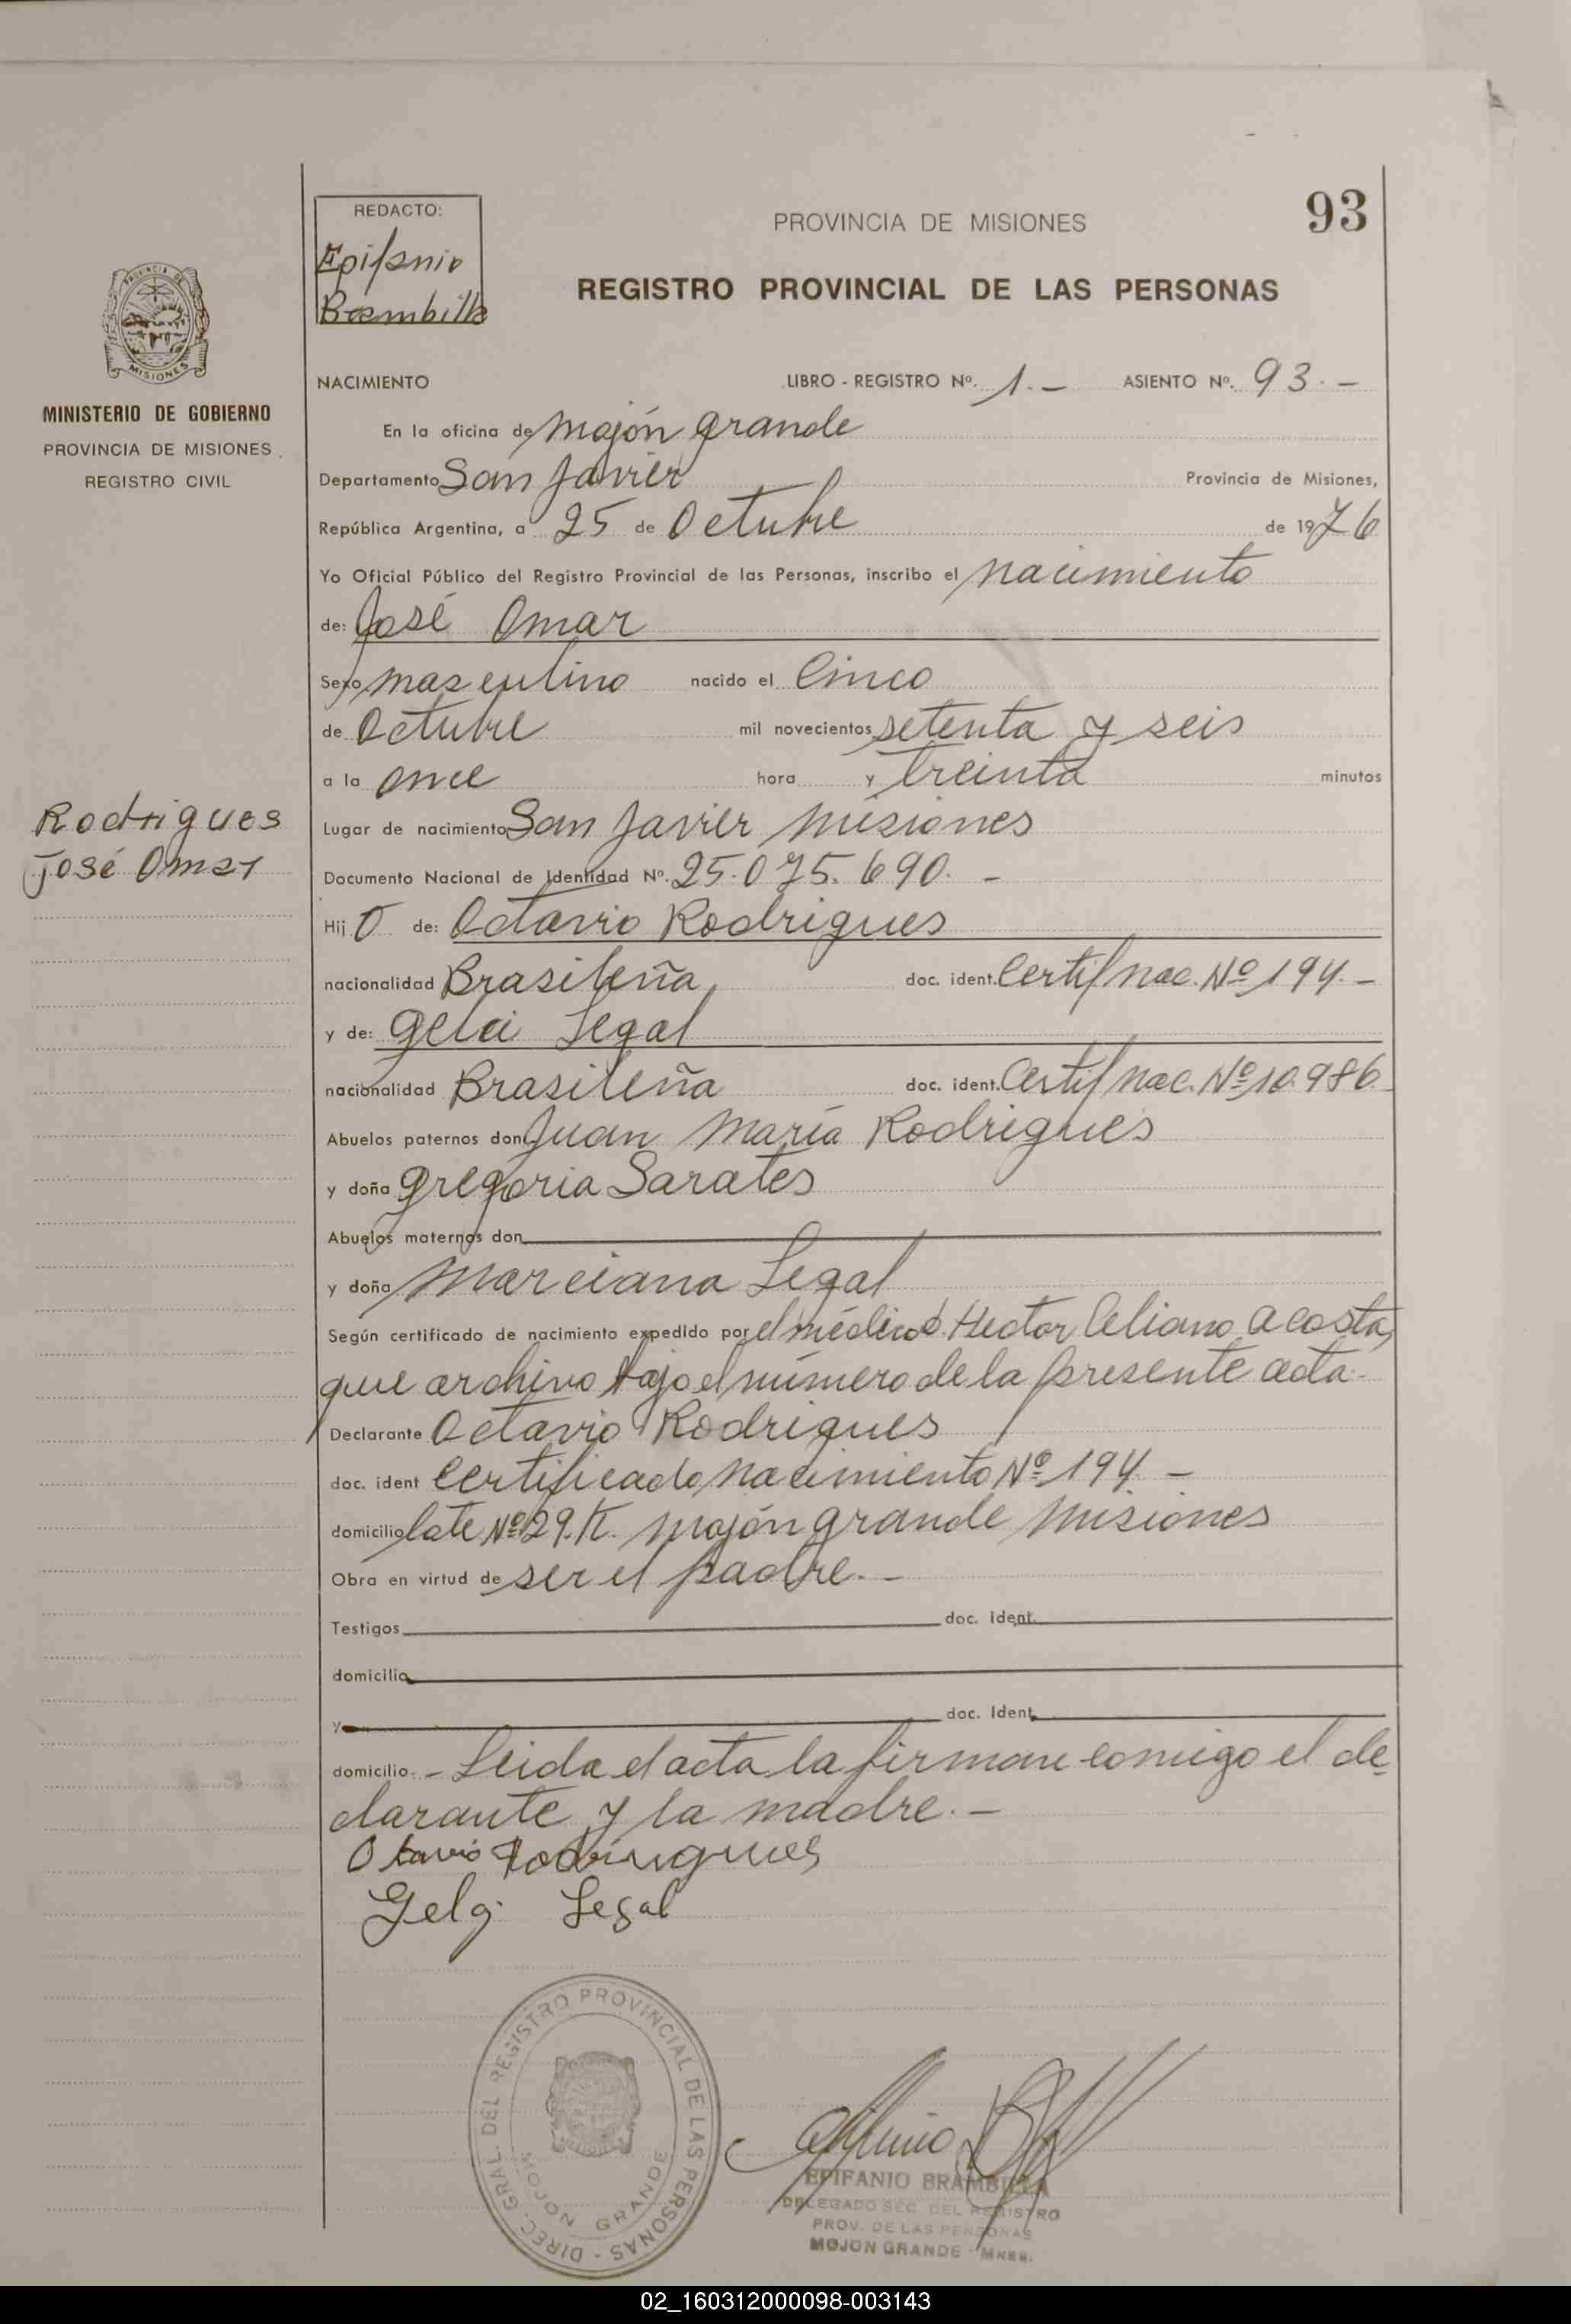 REDACTO:
Epifanio
Brambilla
PROVINCIA DE MISIONES
93
REGISTRO PROVINCIAL DE LAS PERSONAS
MISIONES
MINISTERIO DE GOBIERNO
PROVINCIA DE MISIONES
REGISTRO CIVIL
NACIMIENTO LIBRO - REGISTRO Nº. 1.- ASIENTO Nº. 93.-
En la oficina de Mojón grande
Departamento San Javier Provincia de Misiones,
República Argentina, a 25 de Octubre de 1976
Yo Oficial Público del Registro Provincial de las Personas, inscribo el nacimiento
de: José Omar
Sexo masculino nacido el Cinco
de Octubre mil novecientos setenta y seis
a la once hora y treinta minutos
Rodrigues
José Omar
Lugar de nacimiento San Javier Misiones
Documento Nacional de Identidad Nº. 25.075.690.-
Hij o de: Octavio Rodrigues
nacionalidad Brasileña doc. ident. Certif nac. Nº 194.-
y de: Gelci Legal
nacionalidad Brasileña doc. ident. Certif nac. Nº 10.986.
Abuelos paternos don Juan María Rodrigues
y doña Gregoria Sarates
Abuelos maternos don
y doña Marciana Legal
Según certificado de nacimiento expedido por el médico Hector Celiano Acosta,
que archivo bajo el número de la presente acta.
Declarante Octavio Rodrigues
doc. ident certificado nacimiento Nº 194.-
domicilio lote Nº 29. Mojón grande Misiones
Obra en virtud de ser el padre.-
Testigos doc. ident.
domicilio
y doc. Ident.
domicilio - Leida el acta la firman comigo el de-
clarante y la madre.-
Otavio Rodrigues
Gelci Legal
DIREC. GRAL. DEL REGISTRO PROVINCIAL DE LAS PERSONAS -
MOJON GRANDE
EPIFANIO BRAMBILLA
DELEGADO SEC. DEL REGISTRO
PROV. DE LAS PERSONAS
MOJON GRANDE - MNES.
02_160312000098-003143